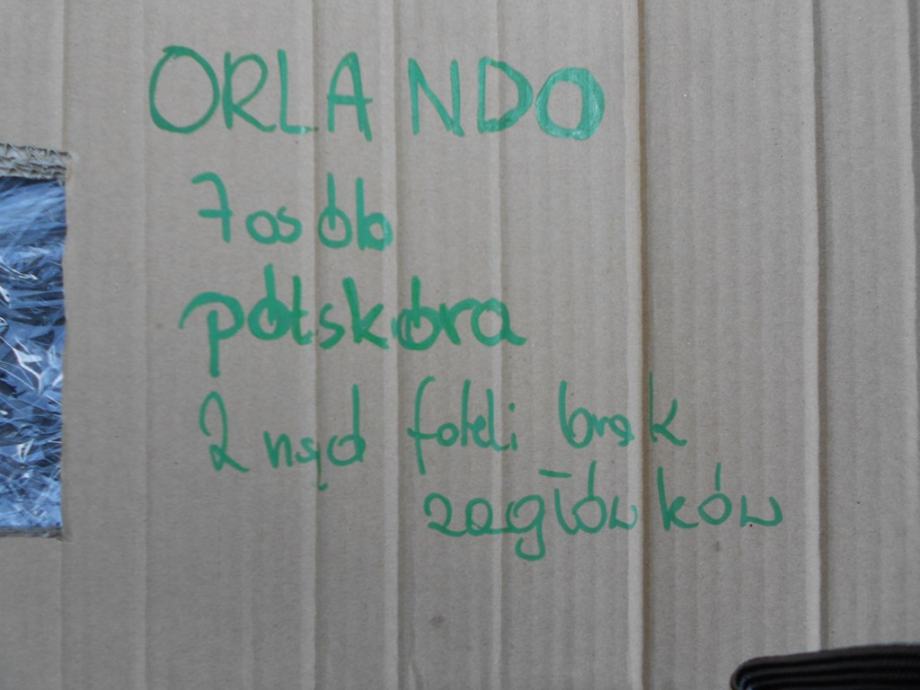 ORLANDO
7 osób
półskóra
2 rząd foteli brak
zagłówków